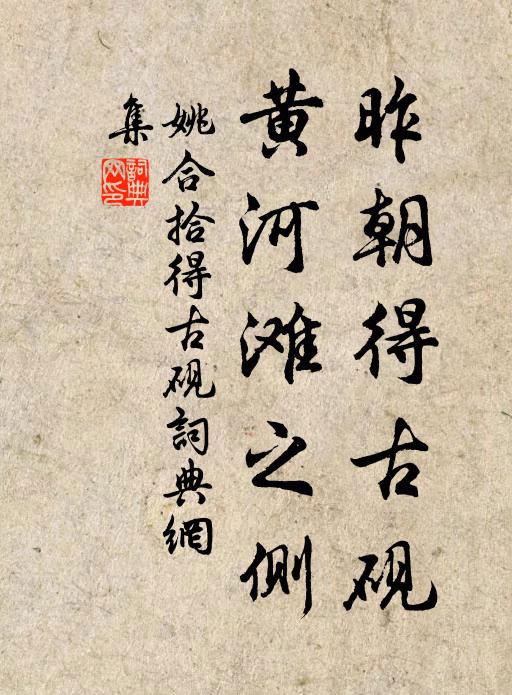 昨朝得古砚
黄河滩之侧
姚合拾得古砚詞典網
集
詞典網印